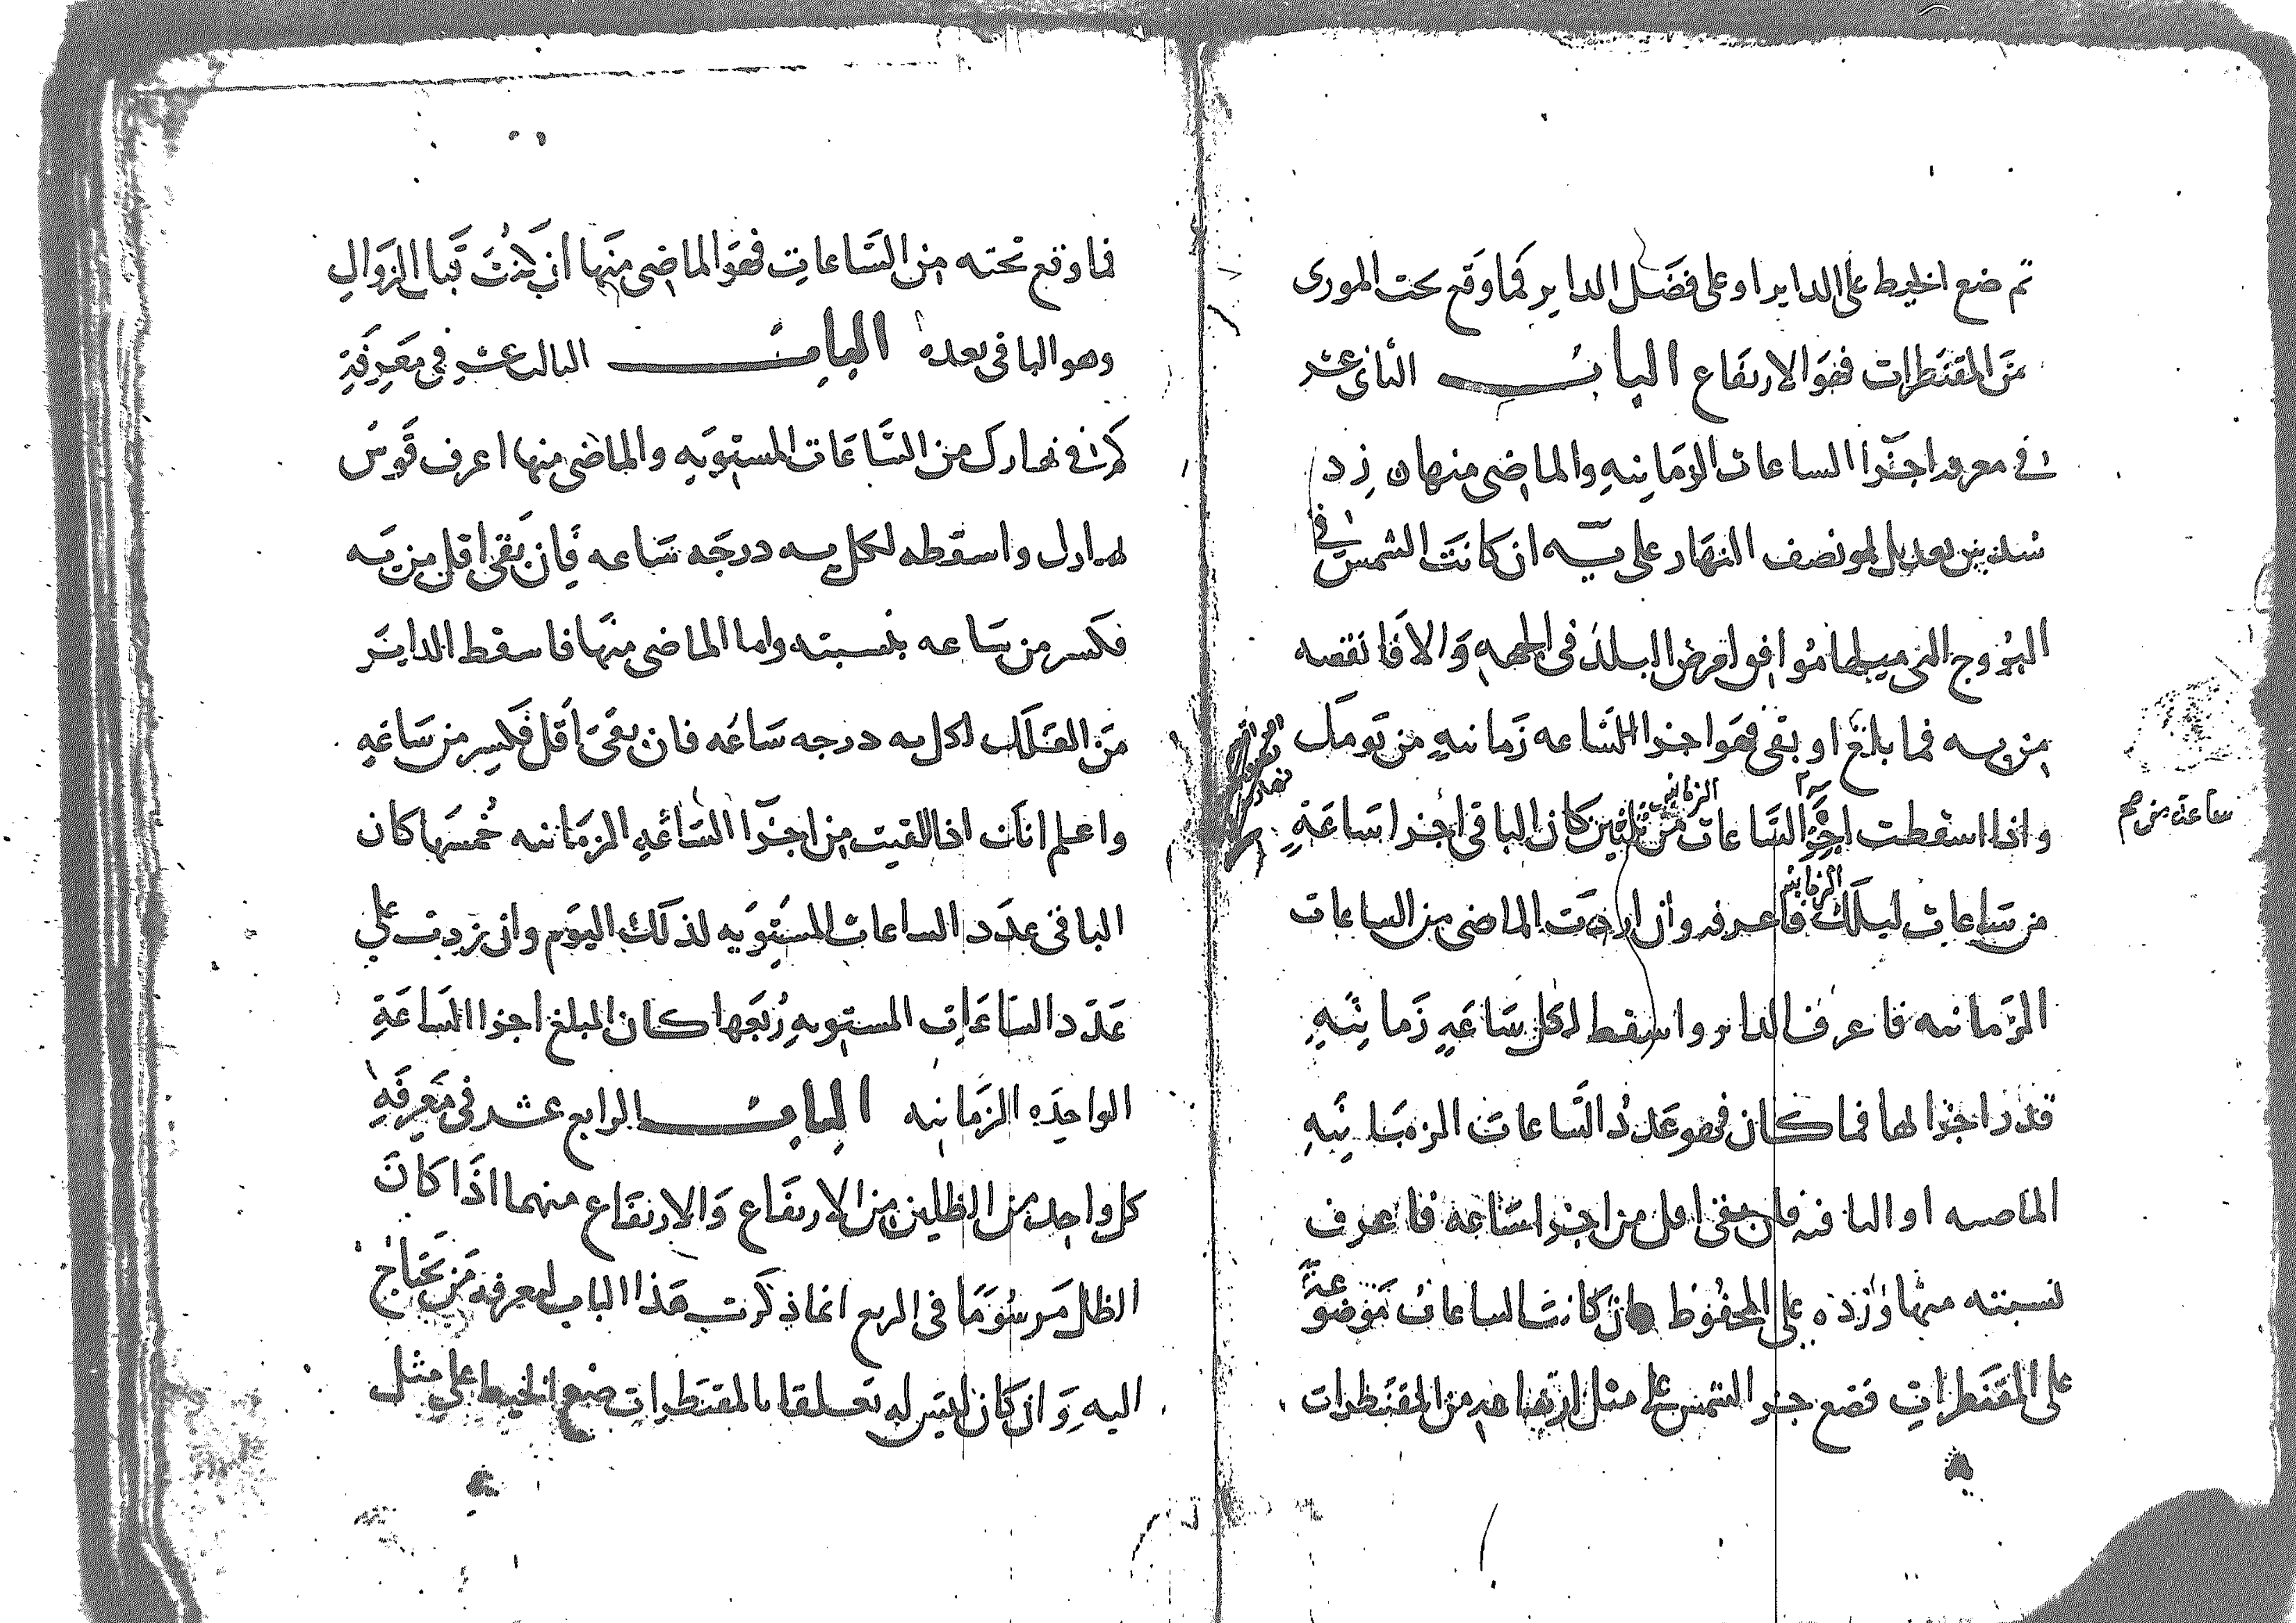 ثم ضع الخيط على الداير او على فضل الداير فما وقع تحت المورى
من المقنطرات فهو الارتفاع الباب الثانى عشر
فى معرفة اجزا الساعات الزمانيه والماضى منها زد
سدس تعديل نصف النهار على يه ان كانت الشمس فى
البروج التى ميلها موافق لعرض البلد فى الجهه والا فانقصه
من يه فما بلغ او بقى فهو اجزا الساعه زمانيه من يومك
واذا اسقطت اجزا الساعات الزمانيه من ثلثين كان الباقى اجزا ساعة
من ساعات ليلك الزمانيه فاعرفه وان اردت الماضى من الساعات
الزمانيه فاعرف الداير واسقط لكل ساعه زمانيه
قدر اجزا لها فما كان فهو عدد الساعات الزمانيه
الماضيه او الباقيه فان بقى اقل من اجزا ساعه فاعرف
نسبته منها وزده على المحفوظ وان كانت الساعات موضوعة
على المقنطرات فضع جزو الشمس على مثل ارتفاعه من المقنطرات
ساعة من
فما وقع تحته من الساعات فهو الماضى منها ان كنت قبل الزوال
وهو الباقى بعده الباب الثالث عشر فى معرفة
كم فى نهارك من الساعات المستويه والماضى منها اعرف قوس
نهارك واسقطه لكل يه درجه ساعه فان بقى اقل من يه
فكسر من ساعه بنسبته واما الماضى منها فاسقط الداير
من الفلك لكل يه درجه ساعه فان بقى اقل فكسر من ساعه
واعلم انك اذا القيت من اجزا الساعه الزمانيه خمسها كان
الباقى عدد الساعات المستويه لذلك اليوم وان زدت على
عدد الساعات المستويه ربعها كان المبلغ اجزا الساعة
الواحده الزمانيه الباب الرابع عشر فى معرفة
كل واحد من الظلين من الارتفاع والارتفاع منهما اذا كان
الظل مرسوما فى الربع انما ذكرت هذا الباب لمعرفة من يحتاج
اليه وان كان ليس له تعلقا بالمقنطرات ضع الخيط على مثل